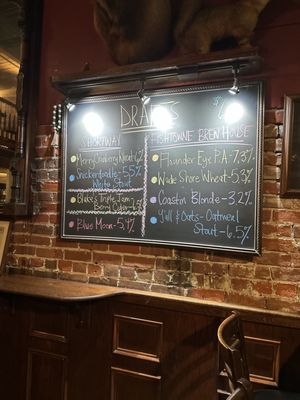 DRAFTS
SHORTWAY
Merry Cranberry Heart-6%
Snickerdoodle-5.5%
White Stout
Blake's Triple Jam
Berry Cider-6.5%
Blue Moon-5.4%
FISHTOWNE BREW HOUSE
Flounder Eye PA-7.3%
Wade Shore Wheat-5%
Coastin Blonde-3.2%
Y'all & Oats-Oatmeal
Stout-6.5%